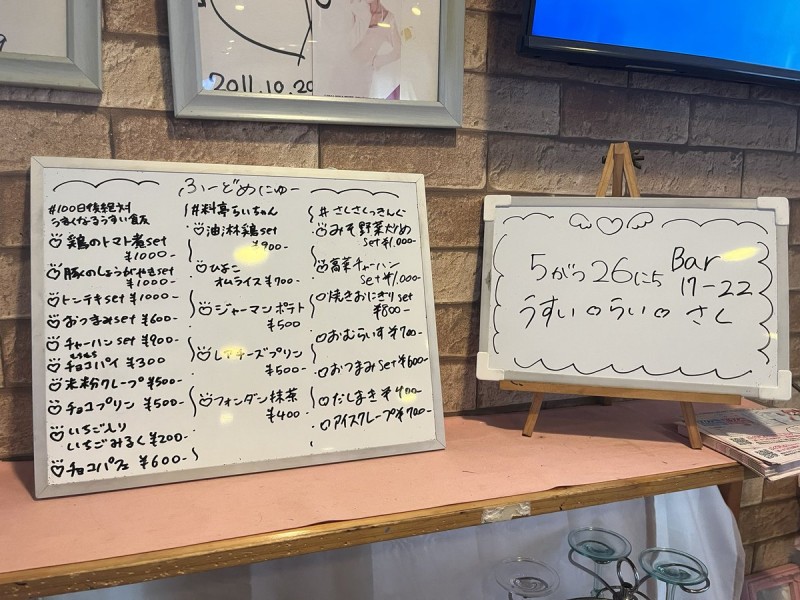 2011.10.29
ふーどめにゅー
#100日後絶対
うまくなるうすい食友
鶏のトマト煮set
¥1000-
豚のしょうがやきset
¥1000-
トンテキset ¥1000-
おつまみset ¥600-
チャーハン set ¥900-
チョコパイ ¥300
米粉クレープ ¥500-
チョコプリン ¥500-
いちごいり
いちごみるく ¥200-
チョコパフェ ¥600-
#料亭らいちゃん
油淋鶏set
¥900-
ひよこ
オムライス ¥700-
ジャーマンポテト
¥500
レアチーズプリン
¥500-
フォンダン抹茶
¥400
# さくさくっきんぐ
みそ野菜炒め
set ¥1.000-
高菜チャーハン
set ¥1.000-
焼きおにぎり set
¥800-
おむらいす ¥700-
おつまみ set ¥600-
だしまき ¥400-
アイスクレープ ¥700-
5がつ26にち
Bar
17-22
うすい らい さく